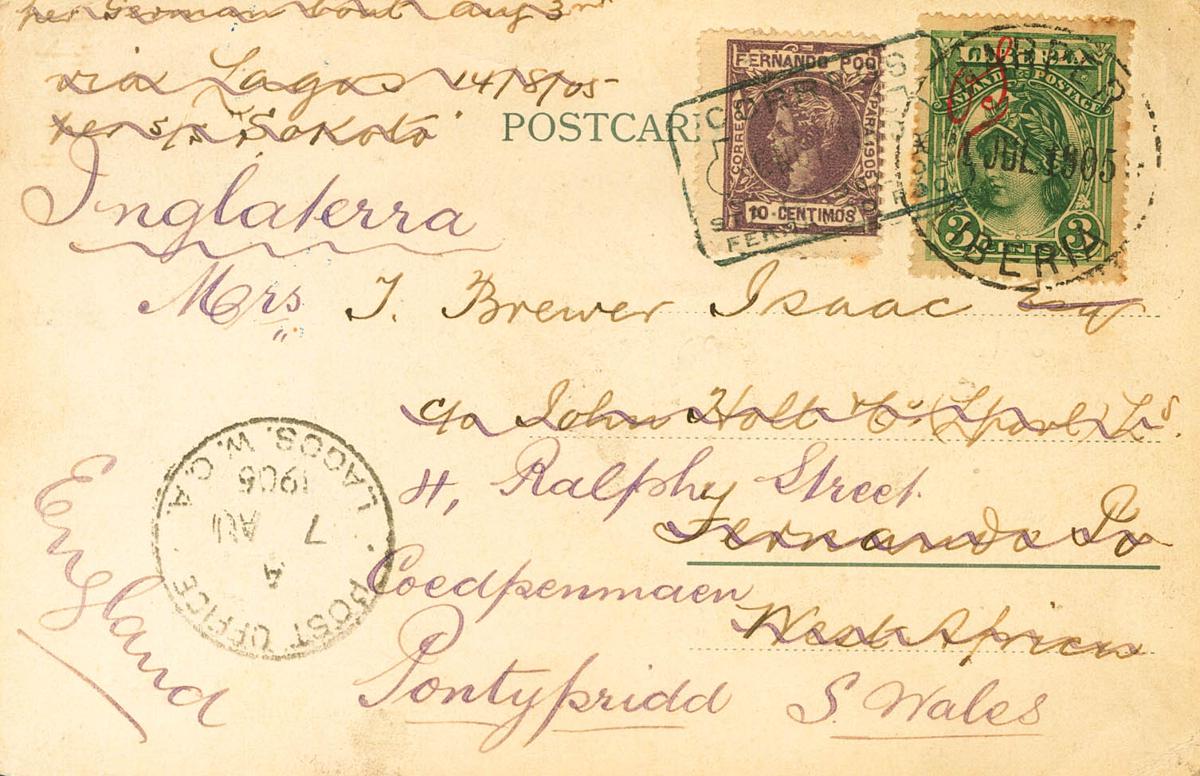 per German boat Aug 3rd
via Lagos 14/8/05
per s/s "Sokoto"
POSTCARD
Inglaterra
Mrs J. Brewer Isaac Esq
c/o John Holt & Co (Lpool) Ld.
4, Ralph Street
Fernando Po
Coedpenmaen
West Africa
Pontypridd S. Wales
England
FERNANDO POO
CORREOS
PARA 1905
10 CENTIMOS
INLAND POSTAGE
3 3
JUL 1905
LIBERIA
POST OFFICE
LAGOS. W.C.A.
A
7 AU
1905